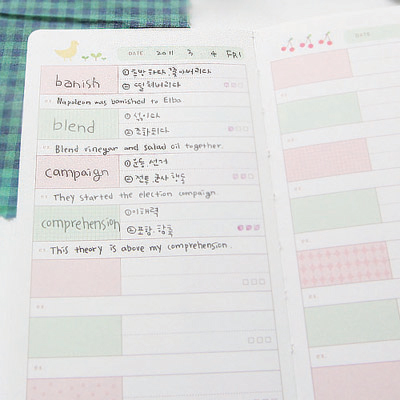 DATE 2011 3 4 FRI
DATE
banish
① 추방하다. 쫓아버리다
② 떨쳐버리다
EX. Napoleon was banished to Elba
blend
① 섞이다
② 조화되다
EX. Blend vinegar and salad oil together.
campaign
① 운동, 선거
② 전투, 군사 행동
EX. They started the election campaign.
comprehension
① 이해력
② 포함. 함축
EX. This theory is above my comprehension.
EX.
EX.